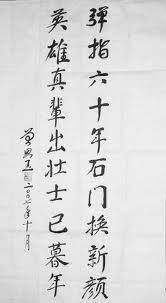 弹指六十年石门换新颜
英雄真辈出壮士已暮年
二〇〇七年十月